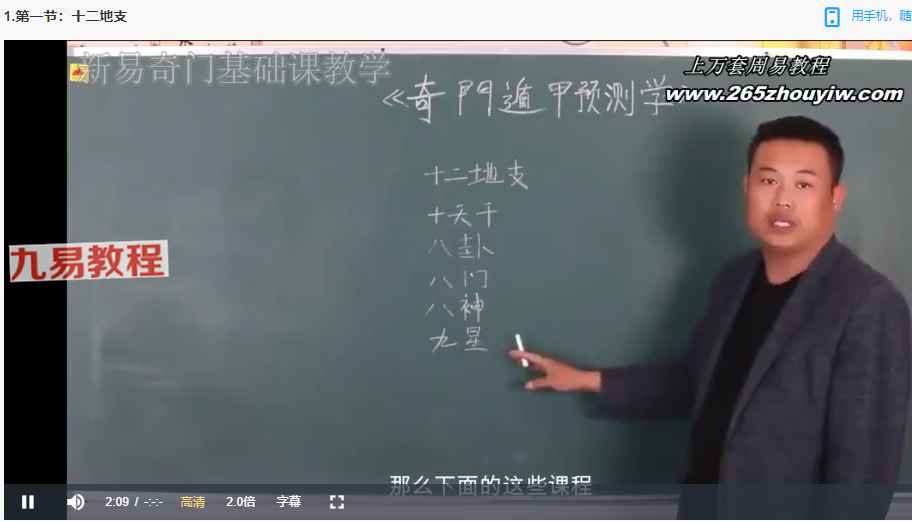 1.第一节：十二地支
用手机，随
新易奇门基础课教学
上万套周易教程
www.265zhouyiw.com
《奇門遁甲预测学
十二地支
十天干
八卦
八门
八神
九星
九易教程
那么下面的这些课程
2:09 / -:-:-
高清
2.0倍
字幕